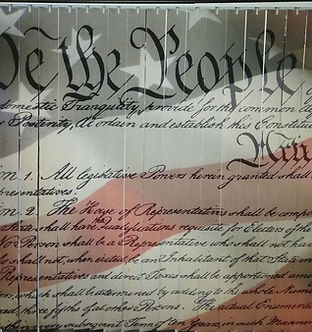 We the People
domestic Tranquility, provide for the common
Posterity, do ordain and establish this Constitu
Arti
on. 1. All legislative Powers herein granted shall
presentatives.
on. 2. The House of Representatives shall be compo
State shall have Qualifications requisite for Electors of the
No Person shall be a Representative who shall not hav
shall not, when elected, be an Inhabitant of that State in
Representatives and direct Taxes shall be apportioned am
which shall be determined by adding to the whole Numb
three fifths of all other Persons. The actual Enumera
every subsequent Term of ten Years, in such Manner